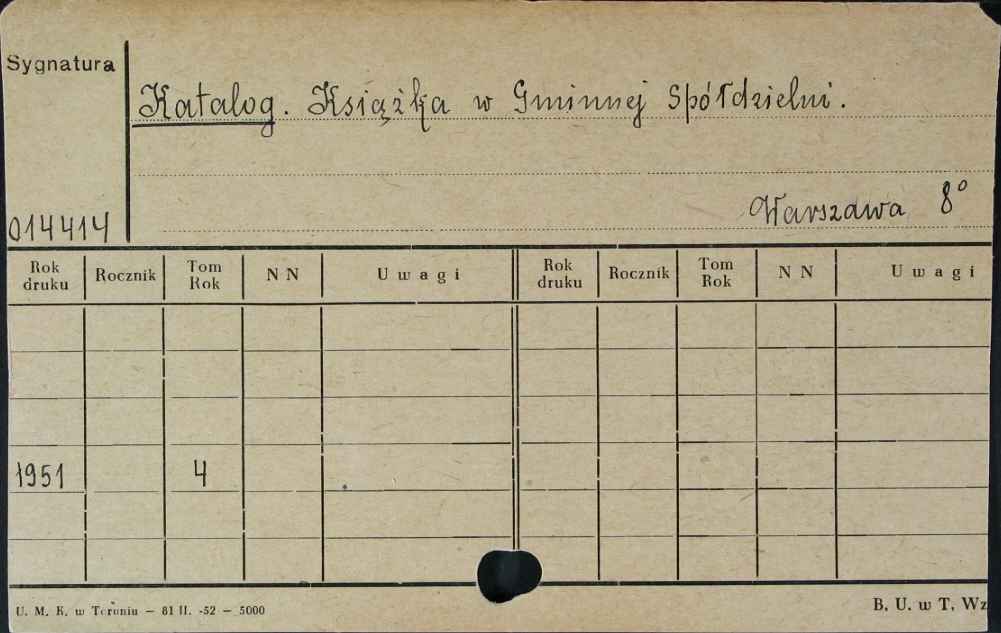 Sygnatura
Katalog. Książka w Gminnej Spółdzielni.
Warszawa 8°
014414
Rok druku Rocznik Tom Rok N N U w a g i Rok druku Rocznik Tom Rok N N U w a g i
1951 4
U. M. K. w Toruniu — 81 II. -52 — 5000
B. U. w T. Wz